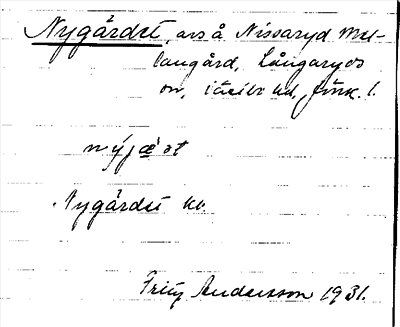 Nygårdet, avs å Nissaryd Mel-
langård, Långaryds
sn, Jönk. l.
nýjæ̀t
Nygårdet kv.
Fritz Andersson 1931.